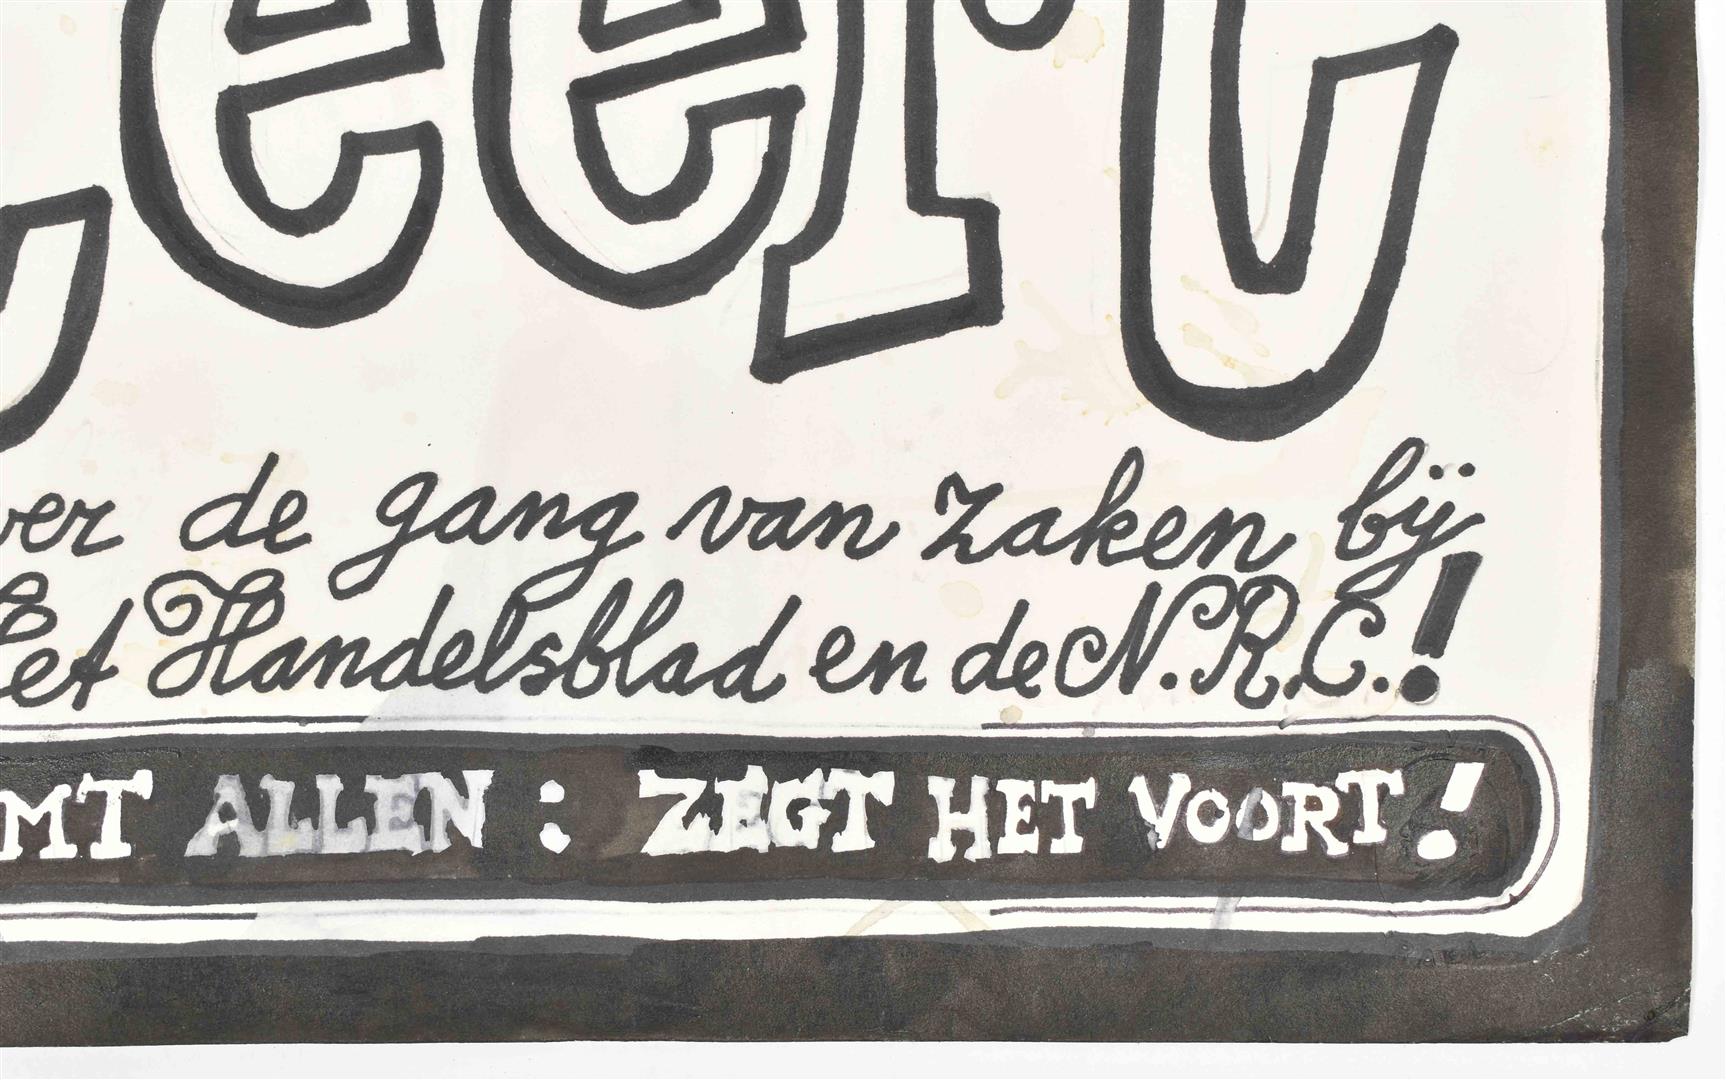 eert
ver de gang van zaken bij
Het Handelsblad en de N.R.C.!
MT ALLEN: ZEGT HET VOORT!